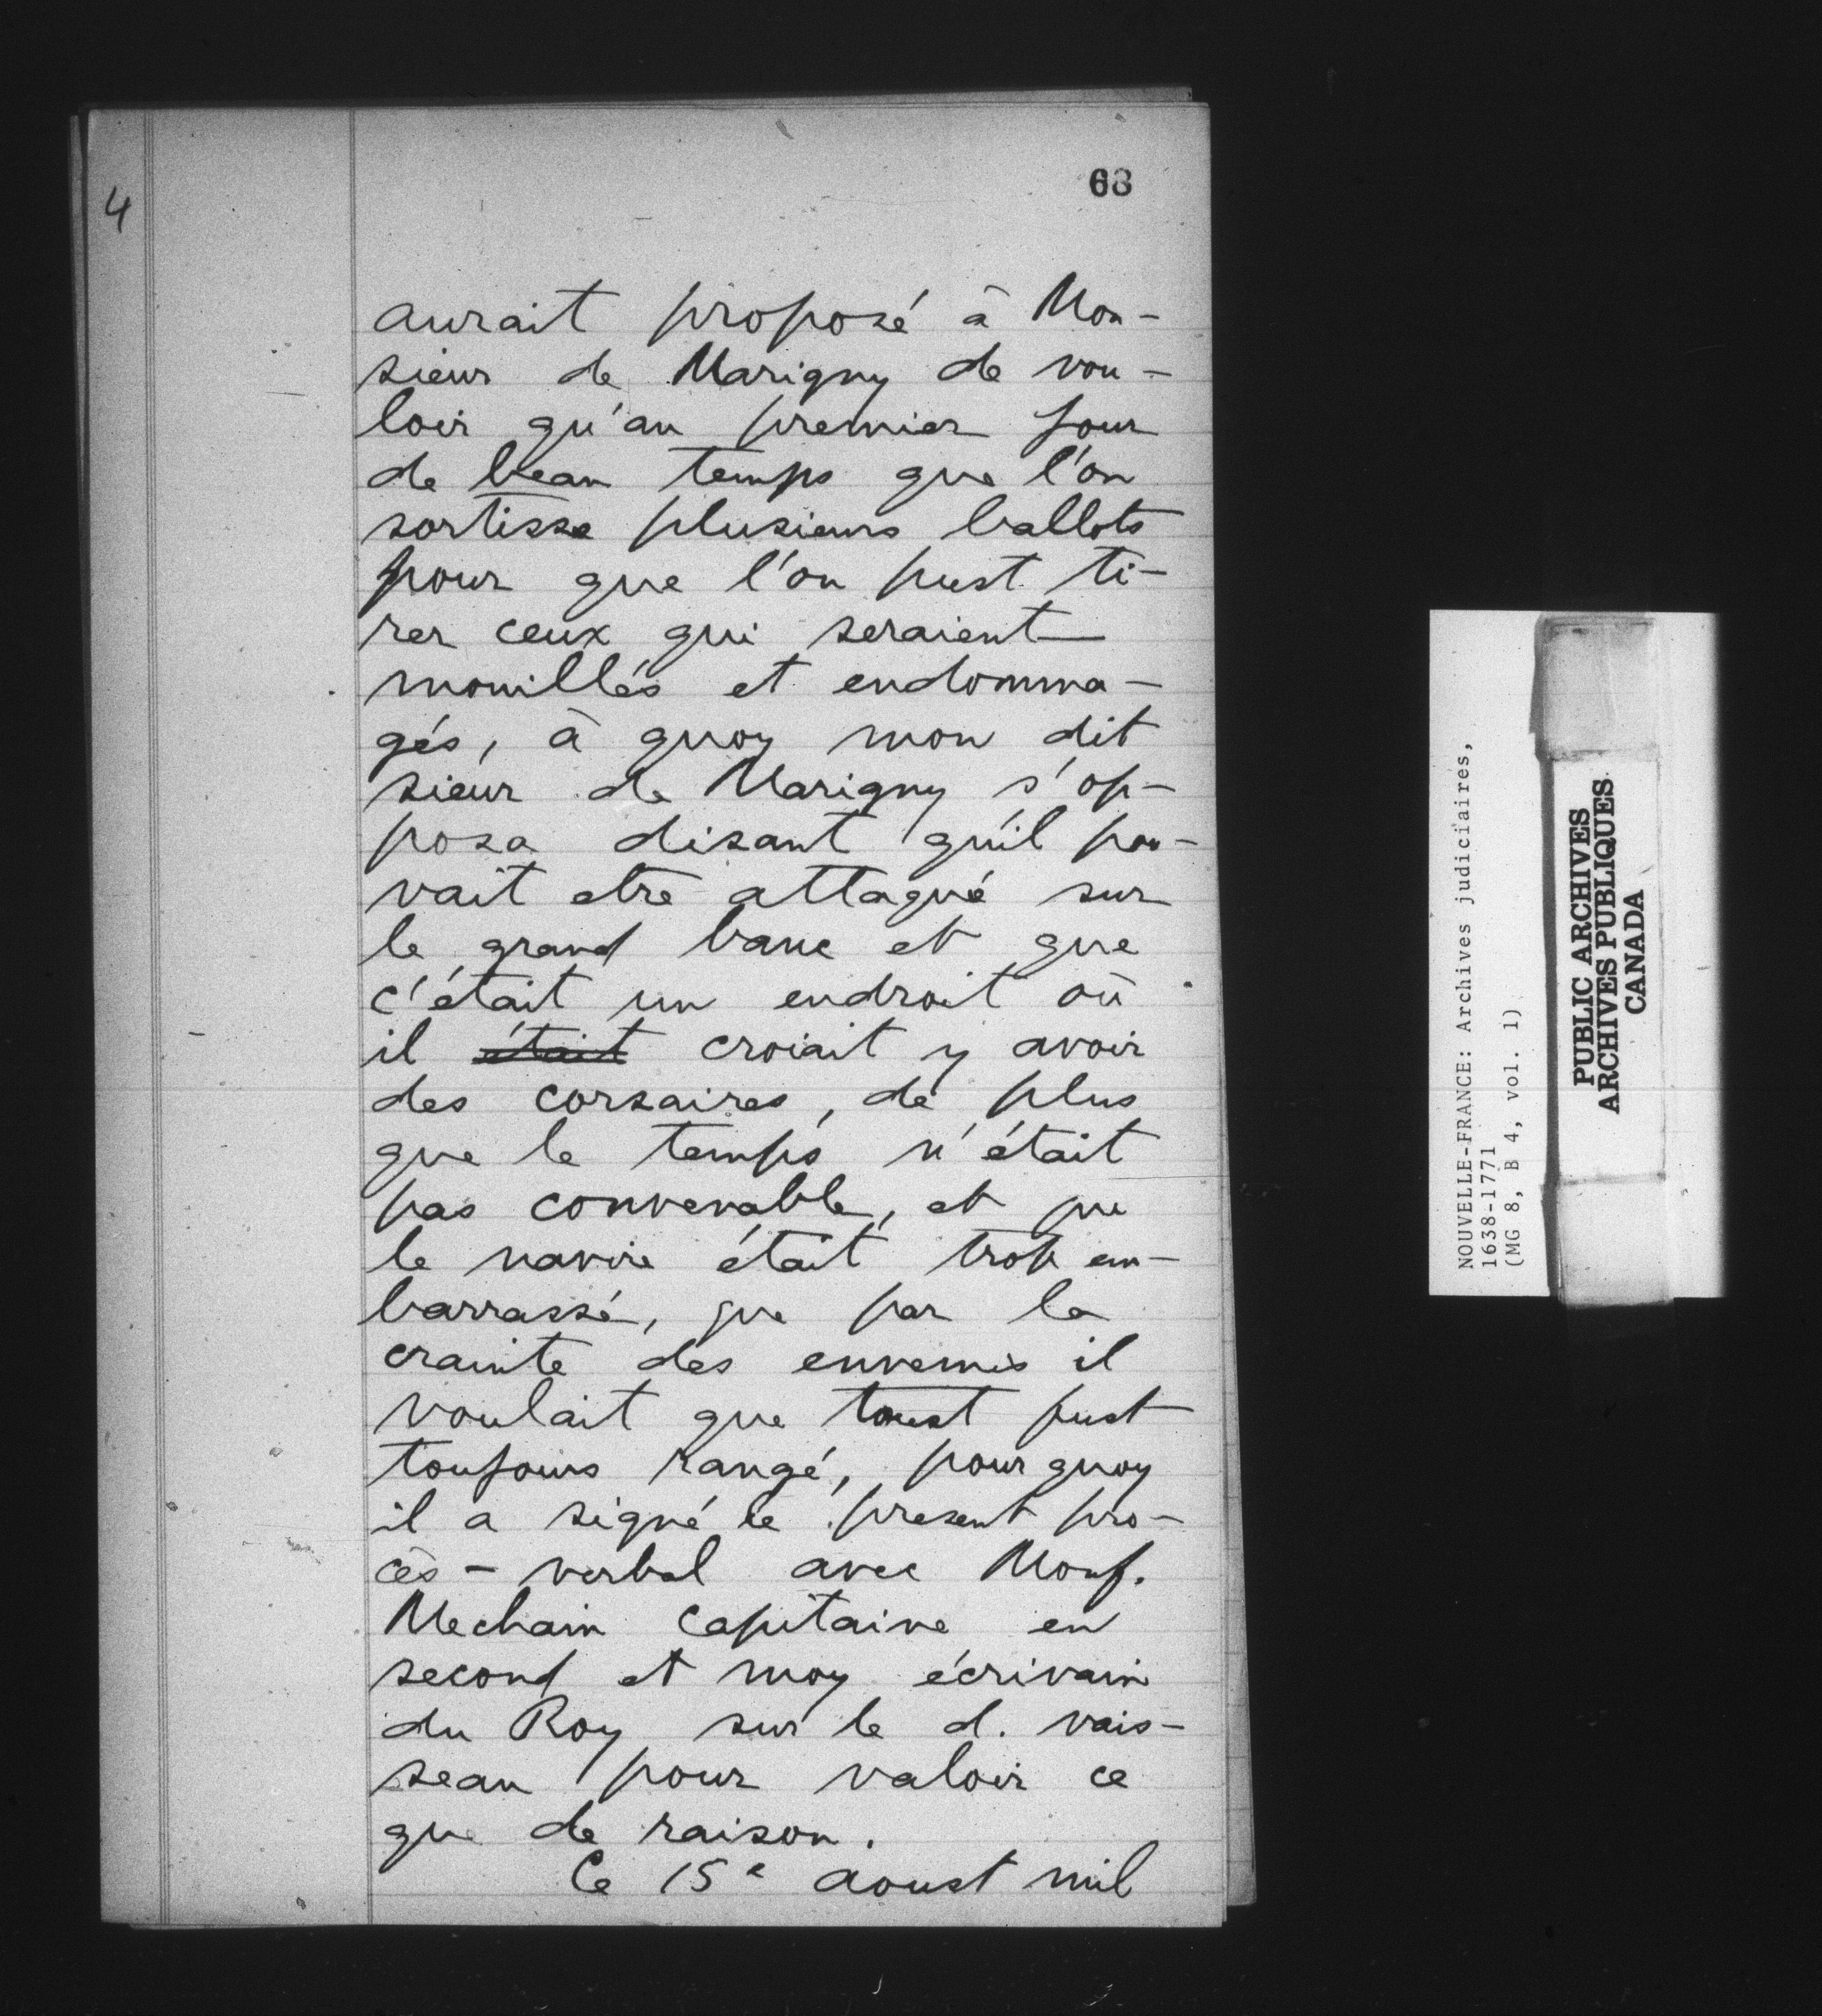 4
68
aurait proposé à Mon-
sieur de Marigny de vou-
loir qu'au premier jour
de beau temps que l'on
sortisse plusieurs ballots
pour que l'on pust ti-
rer ceux qui seraient
mouillés et endomma-
gés, à quoy mon dit
sieur de Marigny s'op-
posa disant qu'il pou-
vait etre attaqué sur
le grand banc et que
c'était un endroit où
il était croiait y avoir
des corsaires, de plus
que le temps n'était
pas convenable, et que
le navire était trop em-
barrassé, que par la
crainte des ennemis il
voulait que toust fust
toujours rangé, pour quoy
il a signé le present pro-
cès-verbal avec Monf.
Mechain capitaine en
second et moy écrivain
du Roy sur le d. vais-
seau pour valoir ce
que de raison.
Ce 15e aoust mil
NOUVELLE-FRANCE: Archives judiciaires,
1638-1771
(MG 8, B 4, vol. 1)
PUBLIC ARCHIVES
ARCHIVES PUBLIQUES
CANADA